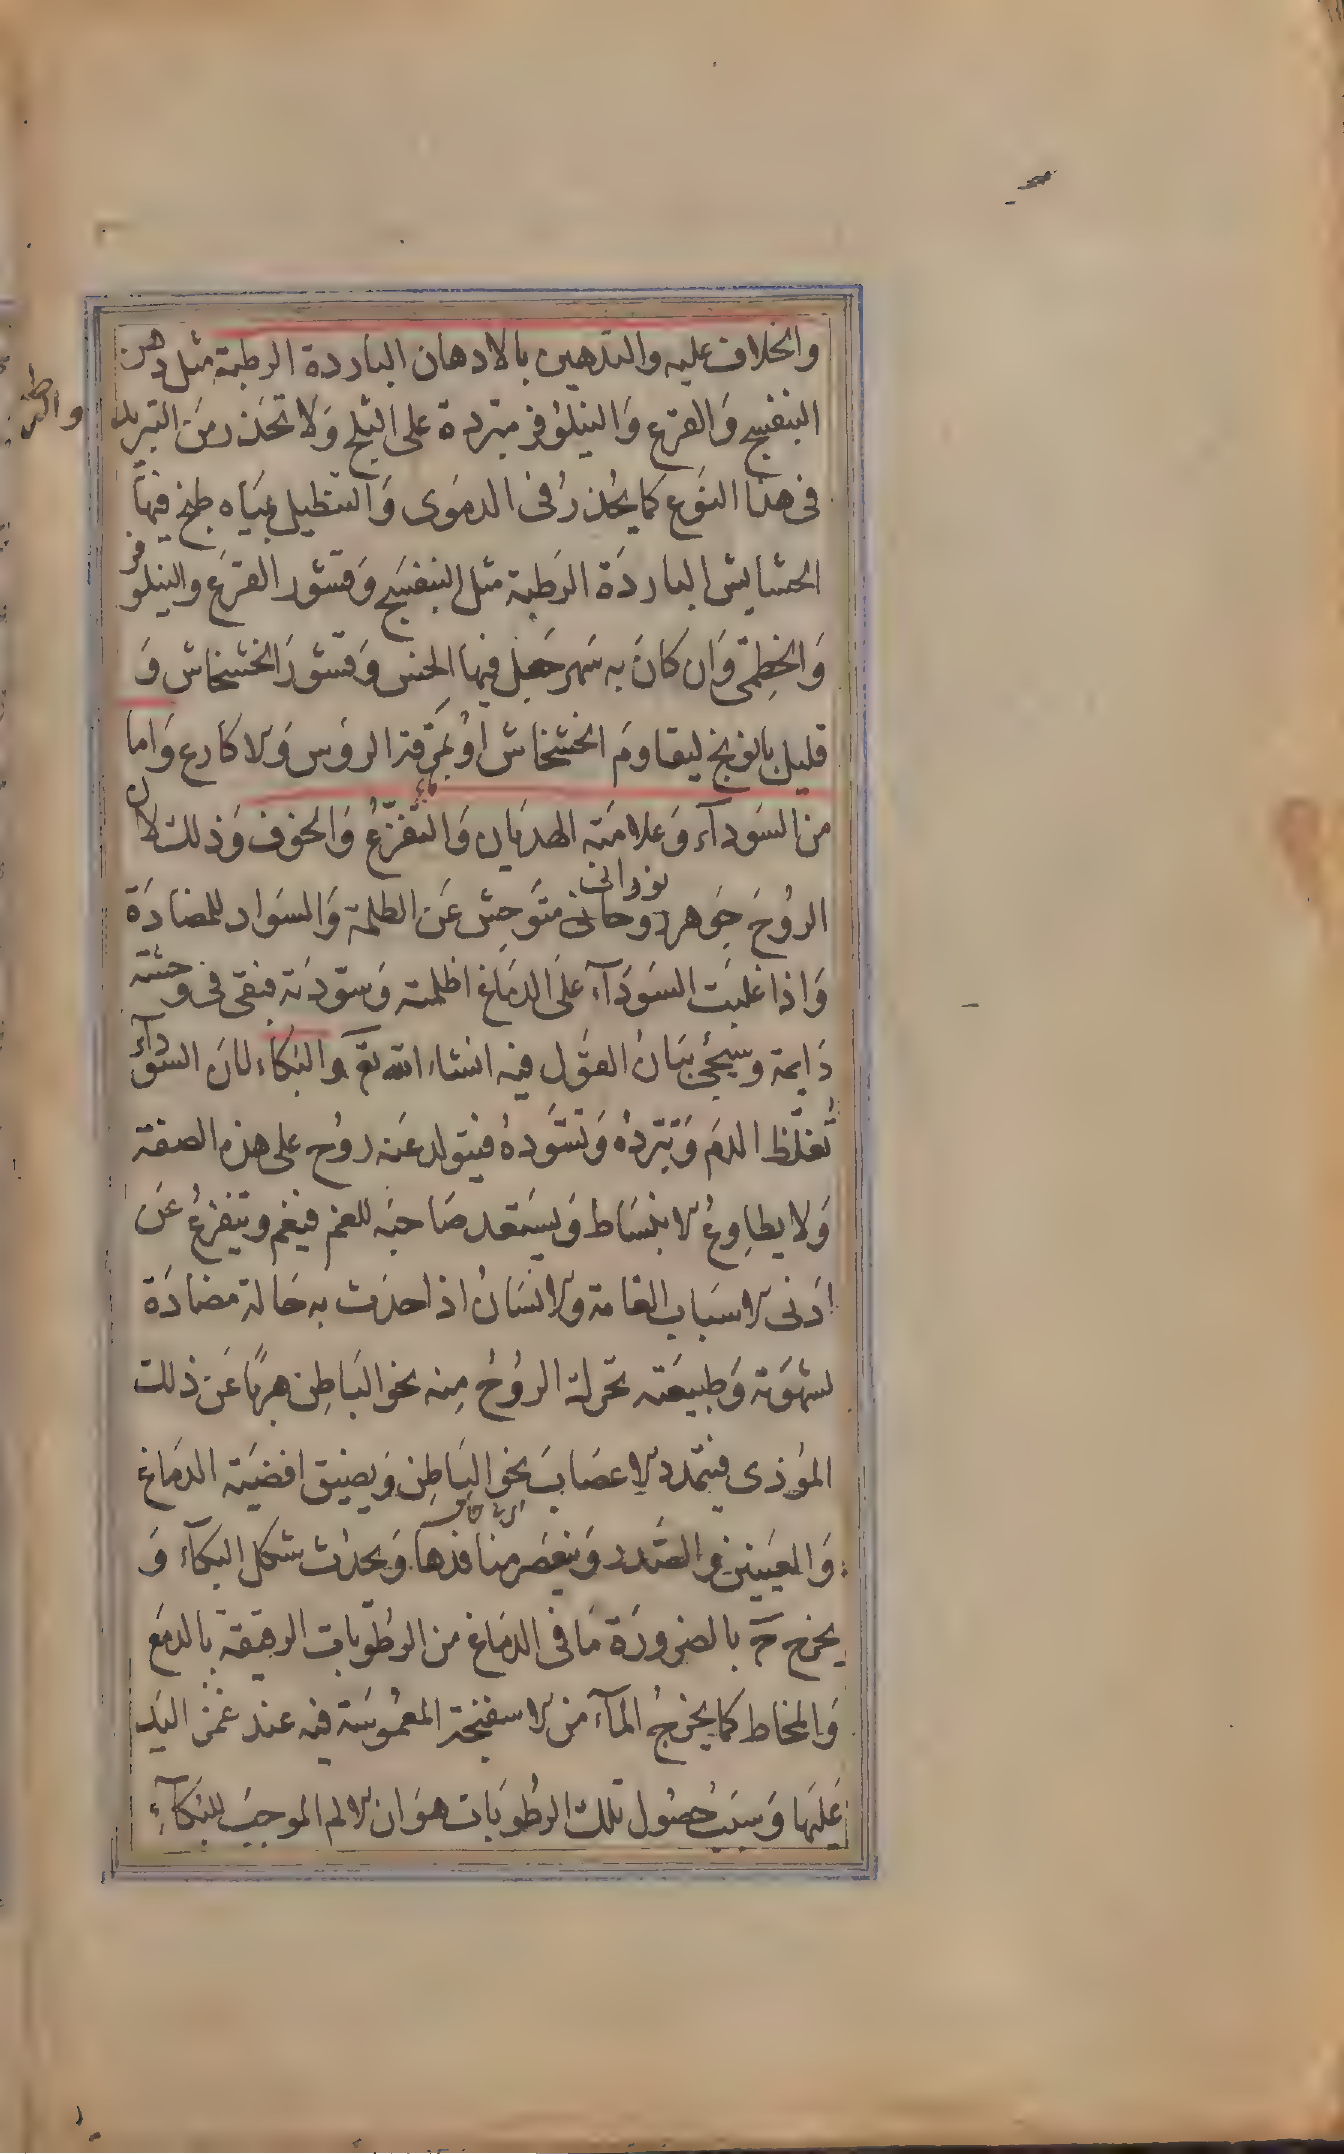 والخلاف عليه والتدهين بالادهان الباردة الرطبة مثل دهن
البنفسج وَالقرع وَالنيلوفر مبردة على الثلج وَلا تحذر منَ التبريد
فى هذا النوَع كما يحُذرُ فى الدموَى وَالتنطيل بميَاه طبخ فيهَا
الحشايش الباردَة الرَطبة مثل البنفسَج وَقشور القرَع والنيلوفر
وَالخِطمى وَان كانَ به سَهر جعَل فيها الخس وَقشورَ الخشخاش وَ
قليل بابونج ليقاومَ الخشخاش اوُ بمَرقة الروَس وَالاكارع وَاما
من السَودآء وَعلامَته الهذيان وَالتفزّعُ وَالخوف وَذلك لان
الروُحَ جَوهر روحانى نورانى متَوحِش عَن الظلمة وَالسَواد للمضادَة
وَاذا غلبَت السَودَآء علَى الدمَاغ اظلمته وَسَوّدَته فبقى فى وحشة
دَايمة وسيَجئ بيَانُ القوَل فيه انشاء الله تع وَالبُكاء لانَ السَودآء
تُغلّظ الدمَ وَتبَردُه وَتسَّودهُ فيتولد عَنه روُح على هذه الصفة
وَلا يطاوِعُ الانبسَاط وَيسَتعد صَاحبَه للغم فيغم ويتفزعُ عَن
ادَنى الاسبَاب الغامة وَالانسَانُ اذا حدَث به حَالة مضادَة
لشهوَته وَطبيعَته تحَركة الروُحُ مِنه نحو البَاطِن هربًا عَن ذلك
الموُذى فيتمدد الاعصَابَ نحو البَاطِن وَيضيق افضيَة الدمَاغ
وَالعيَنين وَالصَدر وَينعصَر منافذهَا وَيحدُث شكل البكآء وَ
يخرج ح بالضرورَة مَا فى الدمَاغ من الرطوُبات الرقيقة بالدمَع
وَالمخاط كما يخرجُ المآء من الاسفنجة المغموُسَة فيه عند غَمز اليَد
عَليَها وَسَببُ حصُول تلك الرطُوبَات هوَ ان الالم الموجبَ للبُكآءِ